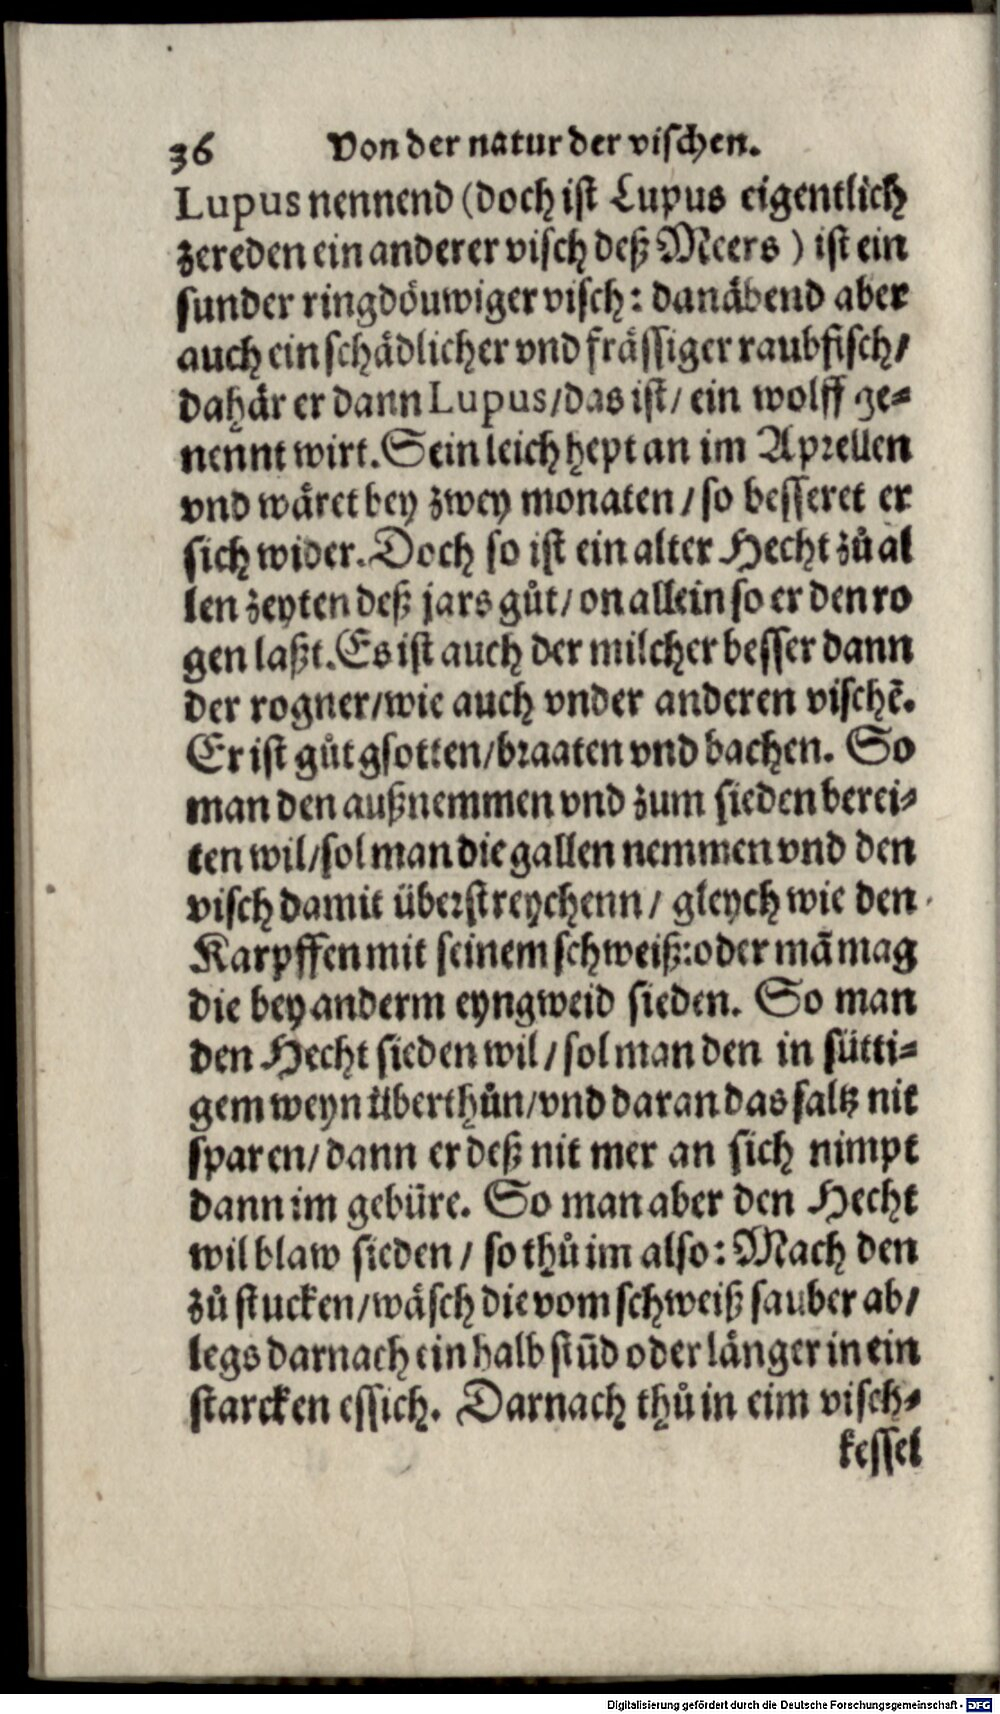 36 Von der natur der vischen.
Lupus nennend (doch ist Lupus eigentlich
zereden ein anderer visch deß Meers) ist ein
sunder ringdöuwiger visch: danäbend aber
auch ein schädlicher vnd frässiger raubfisch/
dahär er dann Lupus/das ist/ ein wolff ge-
nennt wirt. Sein leich hept an im Aprellen
vnd wäret bey zwey monaten/ so besseret er
sich wider. Doch so ist ein alter Hecht zů al
len zeyten deß jars gůt/ on allein so er den ro
gen laßt. Es ist auch der milcher besser dann
der rogner/wie auch vnder anderen vischẽ.
Er ist gůt gsotten/braaten vnd bachen. So
man den außnemmen vnd zum sieden berei-
ten wil/sol man die gallen nemmen vnd den
visch damit überstreychenn/ gleych wie den
Karpffen mit seinem schweiß:oder mã mag
die bey anderm eyngweid sieden. So man
den Hecht sieden wil/ sol man den in sütti-
gem weyn überthůn/vnd daran das saltz nit
sparen/dann er deß nit mer an sich nimpt
dann im gebüre. So man aber den Hecht
wil blaw sieden/ so thů im also: Mach den
zů stucken/wäsch die vom schweiß sauber ab/
legs darnach ein halb stũd oder länger in ein
starcken essich. Darnach thů in eim visch-
kessel
Digitalisierung gefördert durch die Deutsche Forschungsgemeinschaft - DFG